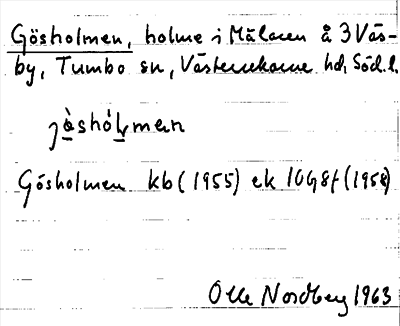 Gösholmen, holme i Mälaren å 3 Väs-
by, Tumbo sn, Västerrekarne hd, Söd. l.
jø̀shólmen
Gösholmen kb (1955) ek 10G8f (1958)
Olle Nordberg 1963